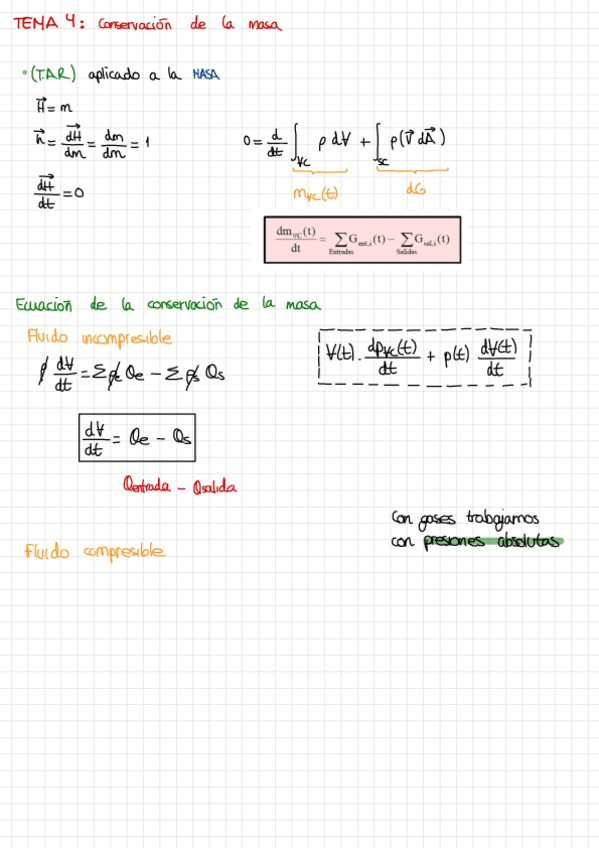 TEMA 4: Conservación de la masa
• (T.A.R) aplicado a la MASA
H⃗ = m
h⃗ = dH⃗/dm = dm/dm = 1
0 = d/dt ∫_VC ρ dV + ∫_SC ρ(V⃗ dA⃗)
m_VC(t) dG
dH⃗/dt = 0
dm_VC(t)/dt = ∑ G_ent,i(t) − ∑ G_sal,i(t)
Entradas Salidas
Ecuación de la conservación de la masa
Fluido incompresible
V(t) · dρ_VC(t)/dt + ρ(t) dV(t)/dt
ρ dV/dt = Σ ρe Qe − Σ ρs Qs
dV/dt = Qe − Qs
Qentrada − Qsalida
Con gases trabajamos
con presiones absolutas
Fluido compresible